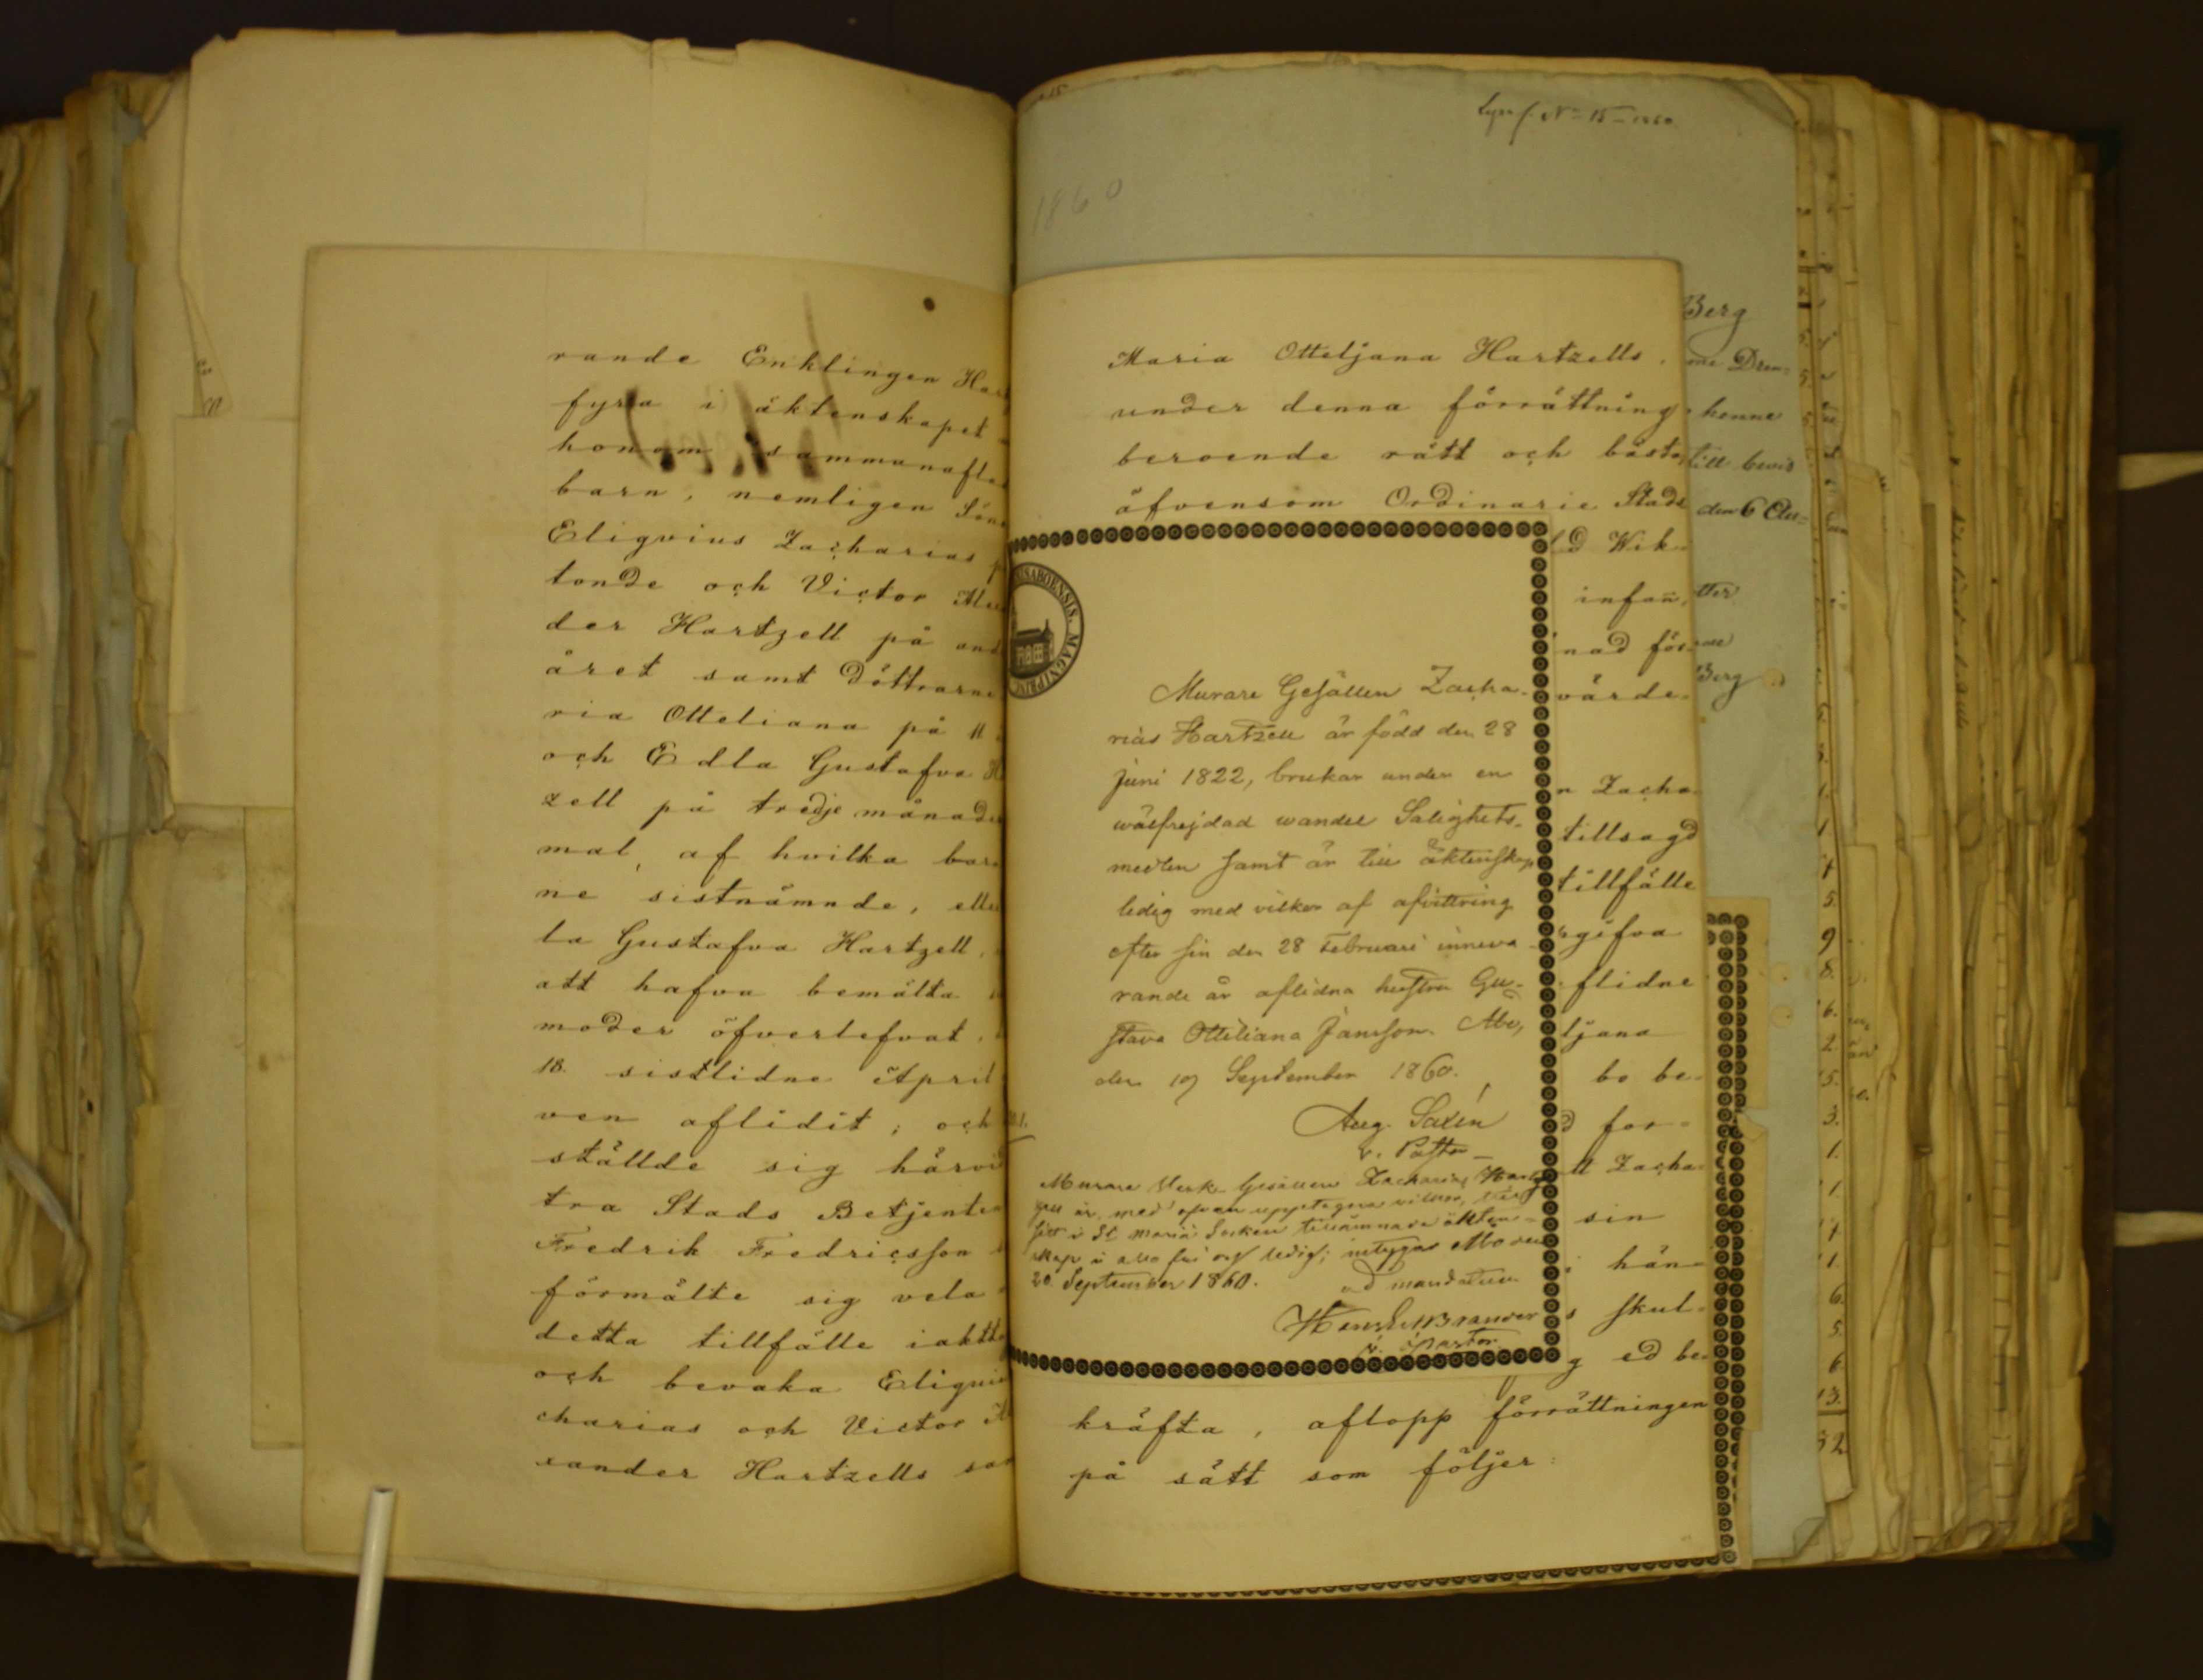 rande Enklingen Har
fyra i äktenskapet
honom sammanafla
barn, nemligen Söne
Eliqvius Zacharias
tonde och Victor Alex
der Hartzell på and
året samt döttrarne
ria Otteliana på 11
och Edla Gustafva H
zell på tredje månade
mal, af hvilka bar
ne sistnämnde, eller
la Gustafva Hartzell,
att hafva bemälta
moder öfverlefvat,
18. sistlidne April
ven aflidit; och
ställde sig härvid
tra Stads Betjenten
Fredrik Fredricsson
förmälte sig vela
detta tillfälle iaktta
och bevaka Eliqvi
charias och Victor A
xander Hartzells
Lysn f. No 15 - 1860
1860
Maria Otteljana Hartzells,
under denna förrättning
beroende rätt och bästa,
äfvensom Ordinarie Stads
d Wik-
infan,
nad för-
värde-
n Zacha-
tillsagd
tillfälle
gifva
flidne
ljana
bo be-
for-
ll Zacha-
sin
hän-
skul-
g ed be-
kräfta, aflopp förrättningen
på sätt som följer:
ABOENSIS. MAGNI PRINC
Murare Gesällen Zacha-
rias Hartzell är född den 28
Juni 1822, brukar under en
wälfrejdad wandel Salighets-
medlen samt är till äktenskap
ledig med vilkor af afvittring
efter sin den 28 Februari inneva-
rande år aflidna hustru Gu-
stava Ottiliana Jansson. Åbo,
den 19 September 1860.
Aug. Saxén
v. Pastor
Murare Verk-Gesällen Zacharias Hart-
zell är, med ofvan upptagne vilkor, till
sitt i St Mariæ Socken tillämnade äkten-
skap i allo fri och ledig; intygas Åbo den
20 September 1860.
ad mandatum
Brander
v. Pastor
Berg
henne
till bevis
den 6 Au-
Berg